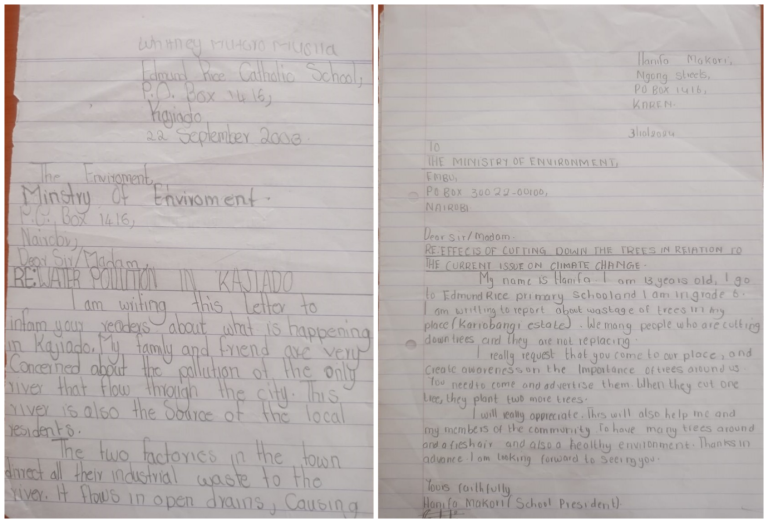 Edmund Rice Catholic School,
P.O. Box 1416,
Kajiado
22 September 2003.
The Enviroment,
Minstry of Enviroment.
P.O. Box 1416,
Nairoby,
Dear Sir/Madam,
RE: WATER POLLUTION IN KAJIADO
I am writing this Letter to
infam your readers about what is happening
in Kajiado. My family and friend are very
Concerned about the pollution of the only
river that flow through the city. This
river is also the source of the local
residents.
The two factories in the town
direct all their industrial waste to the
river. It flows in open drains, Causing
Hanifa Makori,
Ngong streets,
P.O BOX 1416,
KAREN.
TO
THE MINISTRY OF ENVIRONMENT,
P.O BOX 30022-00100,
NAIROBI.
Dear Sir/Madam
RE: EFFECTS OF CUTTING DOWN THE TREES IN RELATION TO
THE CURRENT ISSUE ON CLIMATE CHANGE.
My name is Hanifa I am 13 years old, I go
to Edmund Rice primary school and I am in grade 6.
I am writting to report about wastage of trees in my
place (Kariobangi estate). We many people who are cutting
down trees and they are not replacing.
I really request that you come to our place, and
create awareness on the importance of trees around us.
You need to come and advertise them. When they cut one
tree, they plant two more trees.
I will really appreciate. This will also help me and
my members of the community to have many trees around
and a fresh air and also a healthy environment. Thanks in
advance I am looking forward to seeing you.
Yours faithfully
Hanifa Makori (School President).